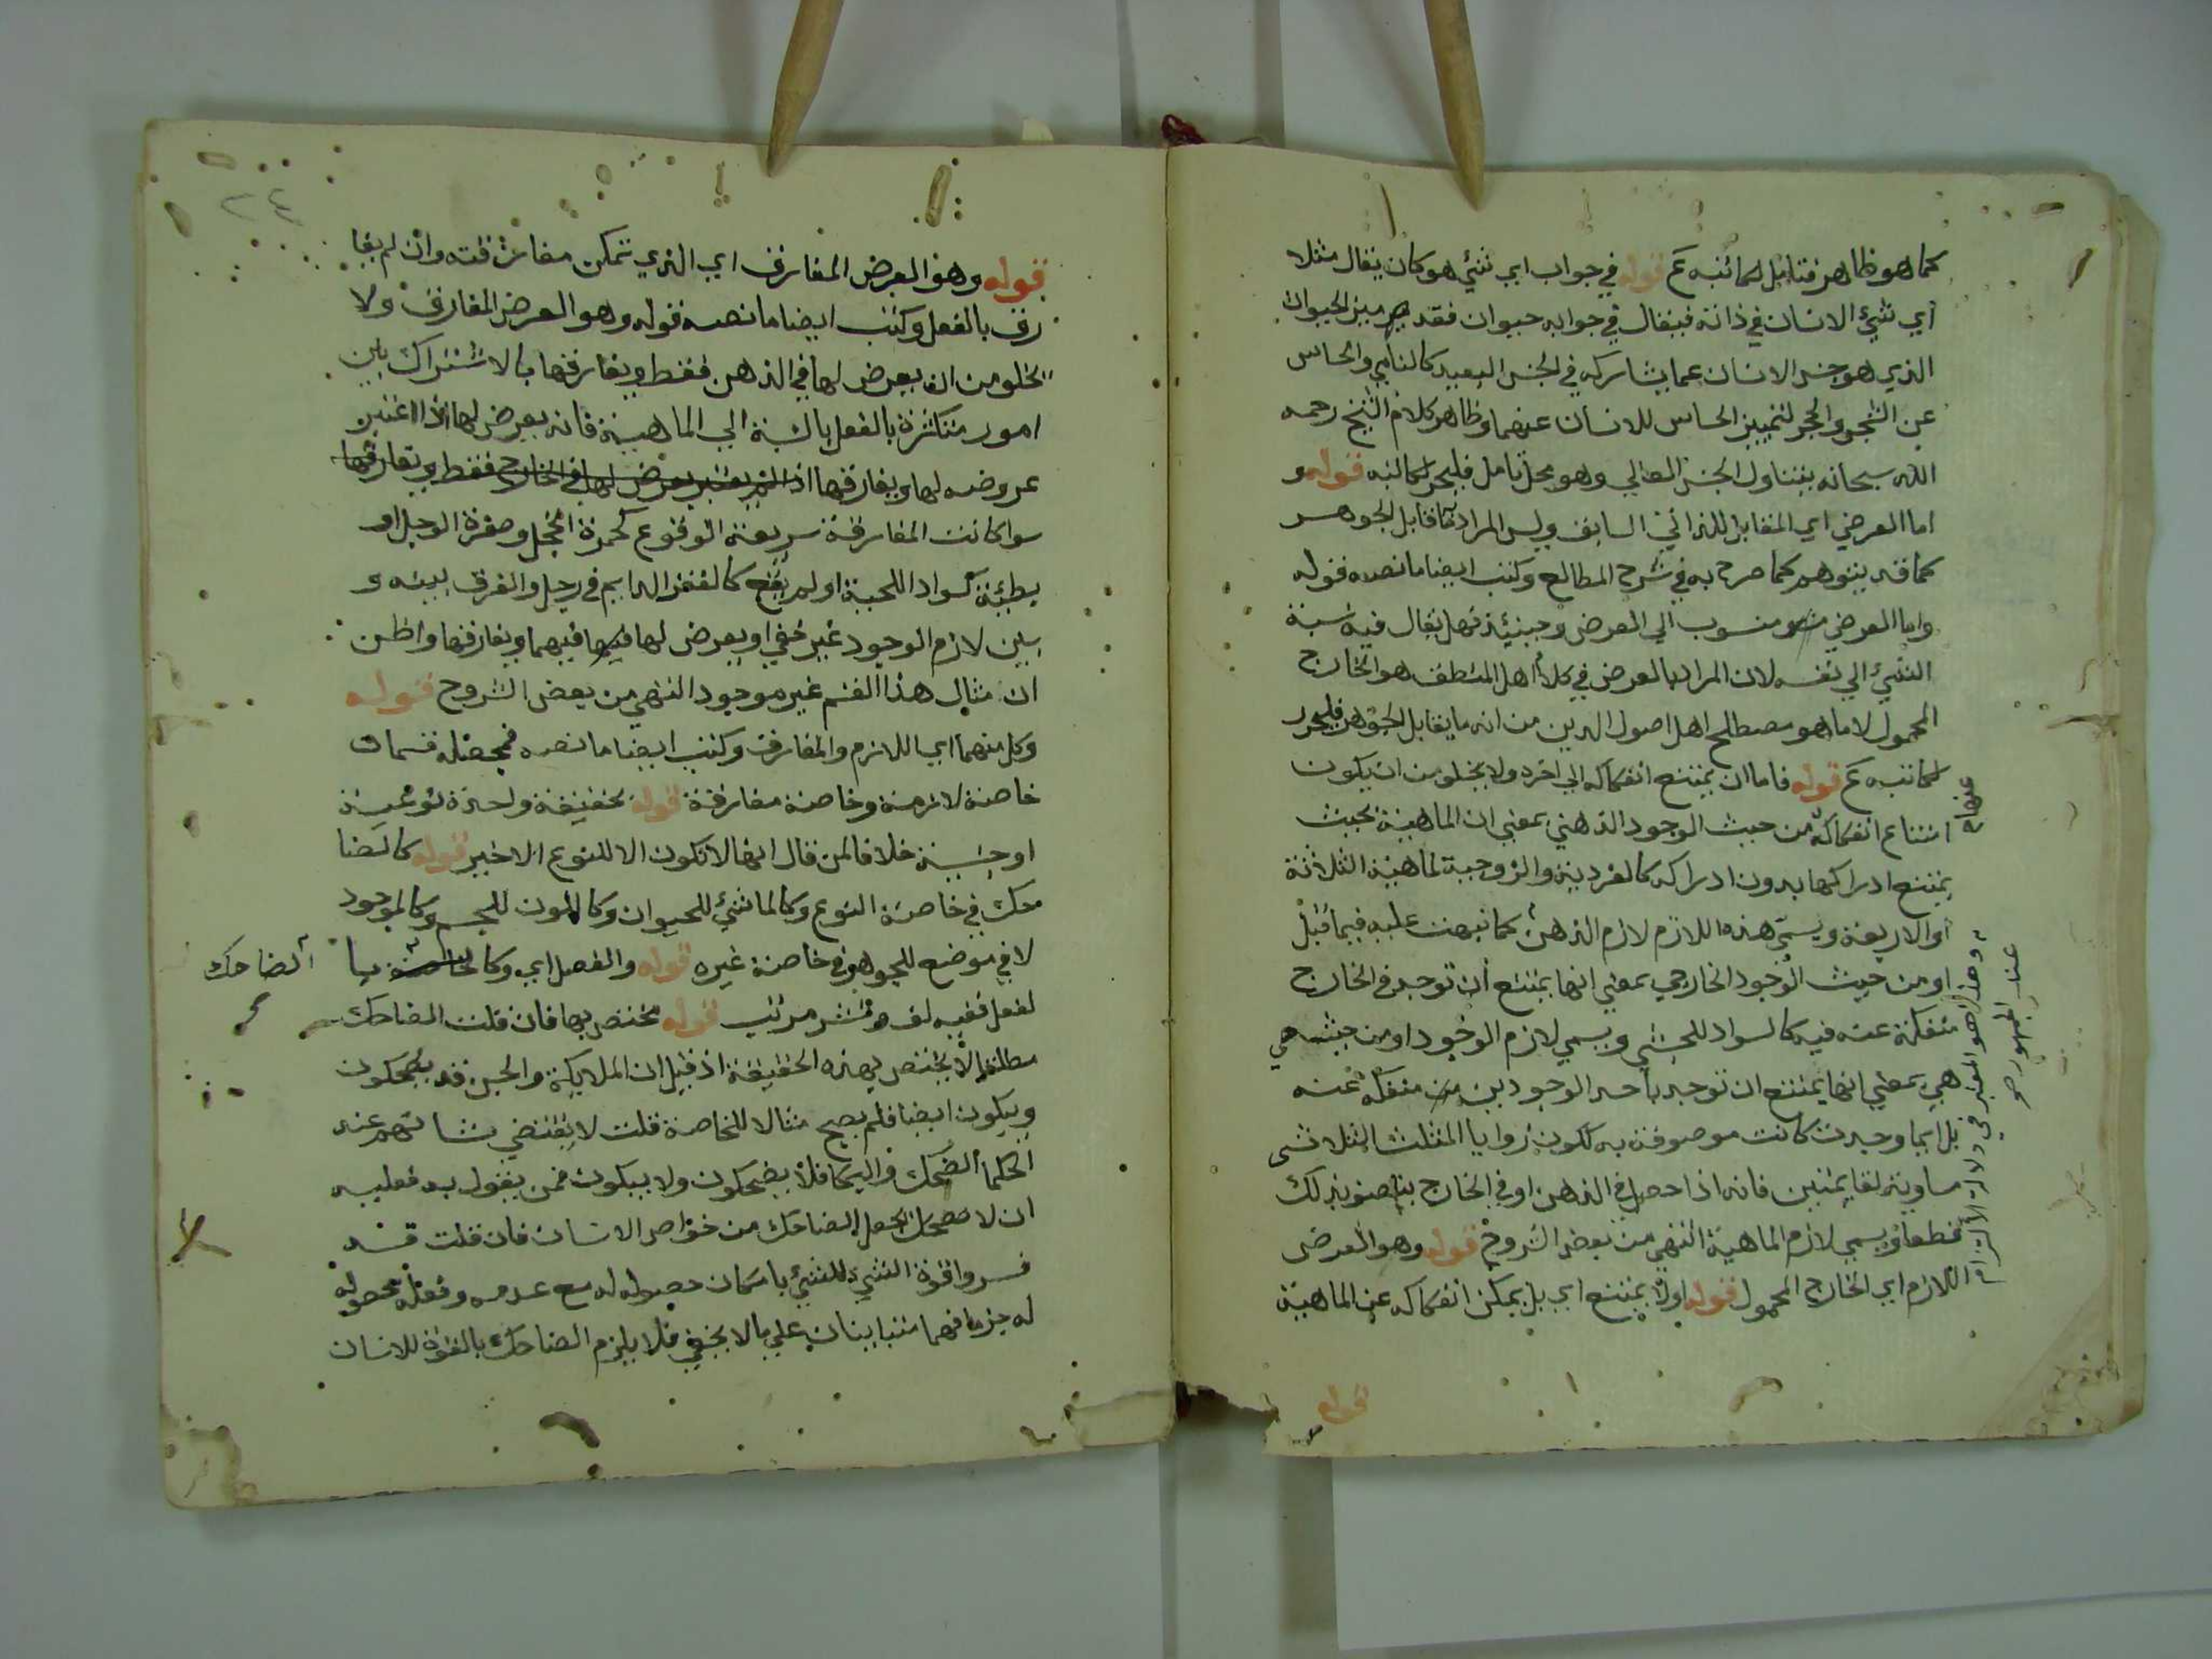 كما هو ظاهر فتامل لكاتبه عم قوله في جواب اي شئ هو كان يقال مثلا
اي شئ الانسان في ذاته فيقال في جوابه حيوان فقد ميز الحيوان
الذي هو جنس الانسان عما يشاركه في الجنس البعيد كالنامي والحاس
عن الشجر والحجر لتمييز الحاس للانسان عنهما وظاهر كلام الشيخ رحمه
الله سبحانه يتناول الجنس العالي وهو محل تامل فليحرر لكاتبه قوله و
اما العرضي اي المقابل للذاتي السابق وليس المراد ما قابل الجوهر
كما قد يتوهم كما صرح به في شرح المطالع وكتب ايضا ما نصه قوله
واما العرضي منسوب الي العرض وحينئذ فهل يقال فيه نسبة
الشئ الي نفسه لان المراد بالعرض في كلام اهل المنطق هو الخارج
المحمول لا ما هو مصطلح اهل اصول الدين من انه ما يقابل الجوهر فليحرر
لكاتبه عم قوله فاما ان يمتنع انفكاكه الي اخره ولا يخلو من ان يكون
امتناع انفكاكه من حيث الوجود الذهني بمعني ان الماهية بحيث
يمتنع ادراكها بدون ادراكه كالفردية والزوجية لماهية الثلاثة
او الاربعة ويسمي هذا اللازم لازم الذهن كما نبهت عليه فيما قبل
او من حيث الوجود الخارجي بمعني انها يمتنع ان توجد في الخارج
منفكة عنه فيه كالسواد للحبشي ويسمي لازم الوجود او من حيث هي
هي بمعني انها يمتنع ان توجد باحد الوجودين منفكة عنه
بل اينما وجدت كانت موصوفة به ككون زوايا المثلث الثلاث
مساوية لقايمتين فانه اذا حصل في الذهن او في الخارج يتصف بذلك
قطعا ويسمي لازم الماهية انتهي من بعض الشروح قوله وهو العرضي
اللازم اي الخارج المحمول قوله اولا يمتنع اي بل يمكن انفكاكه عن الماهية
عنها
وهذا هو المعتبر في دلالة الالتزام
عند الجمهور صح
قوله
٢٤
قوله وهو العرض المفارق اي الذي تمكن مفارقته وان لم يفا
رق بالفعل وكتب ايضا ما نصه قوله وهو العرض المفارق ولا
يخلو من ان يعرض لها في الذهن فقط ويفارقها كالاشتراك بين
امور متكثرة بالفعل بالنسبة الي الماهية فانه يعرض لها اذا اعتبر
عروضه لها ويفارقها اذا لم يعتبر يعرض لها في الخارج فقط ويفارقها
سوا كانت المفارقة سريعة الوقوع كحمرة الخجل وصفرة الوجل او
بطيئة كسواد اللحية او لم يقع كالفقر الدايم في رجل والفرق بينه و
بين لازم الوجود غير خفي او يعرض لها فيهما ويفارقها واظن
ان مثال هذا القسم غير موجود انتهي من بعض الشروح قوله
وكل منهما اي اللازم والمفارق وكتب ايضا ما نصه فمحصله قسمان
خاصة لازمة وخاصة مفارقة قوله بحقيقة واحدة نوعية
او جنسية خلافا لمن قال انها لا تكون الا للنوع الاخير قوله كالضا
حك في خاصة النوع وكالماشي للحيوان وكاللون للجسم وكالموجود
لا في موضع للجوهر في خاصة غيره قوله والفصل اي وكالخاصة بيا
الضاحك
لفعل ففيه لف ونشر مرتب قوله مختص بها فان قلت الضاحك
مطلقا لا يختص بهذه الحقيقة اذ قيل ان الملايكة والجن قد يضحكون
ويبكون ايضا فلم يصح مثالا للخاصة قلت لا يقتضي عند
الحكما الضحك والبكا فلا يضحكون ولا يبكون فمن يقول به فعليه
ان لا يجعل الضاحك من خواص الانسان فان قلت قد
فسروا قوة الشئ للشئ بامكان حصوله له مع عدمه وفعله بحصوله
له جزما فهما متباينان علي ما لا يخفي فلا يلزم الضاحك بالقوة للانسان